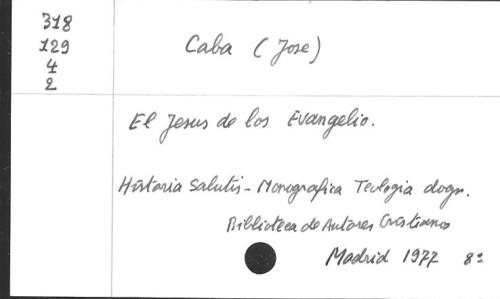 318
129
4
2
Caba (Jose)
El Jesus de los Evangelio.
Historia Salutis - Monografica Teologia dogm.
Biblioteca de Autores Cristianos
Madrid 1977 8º